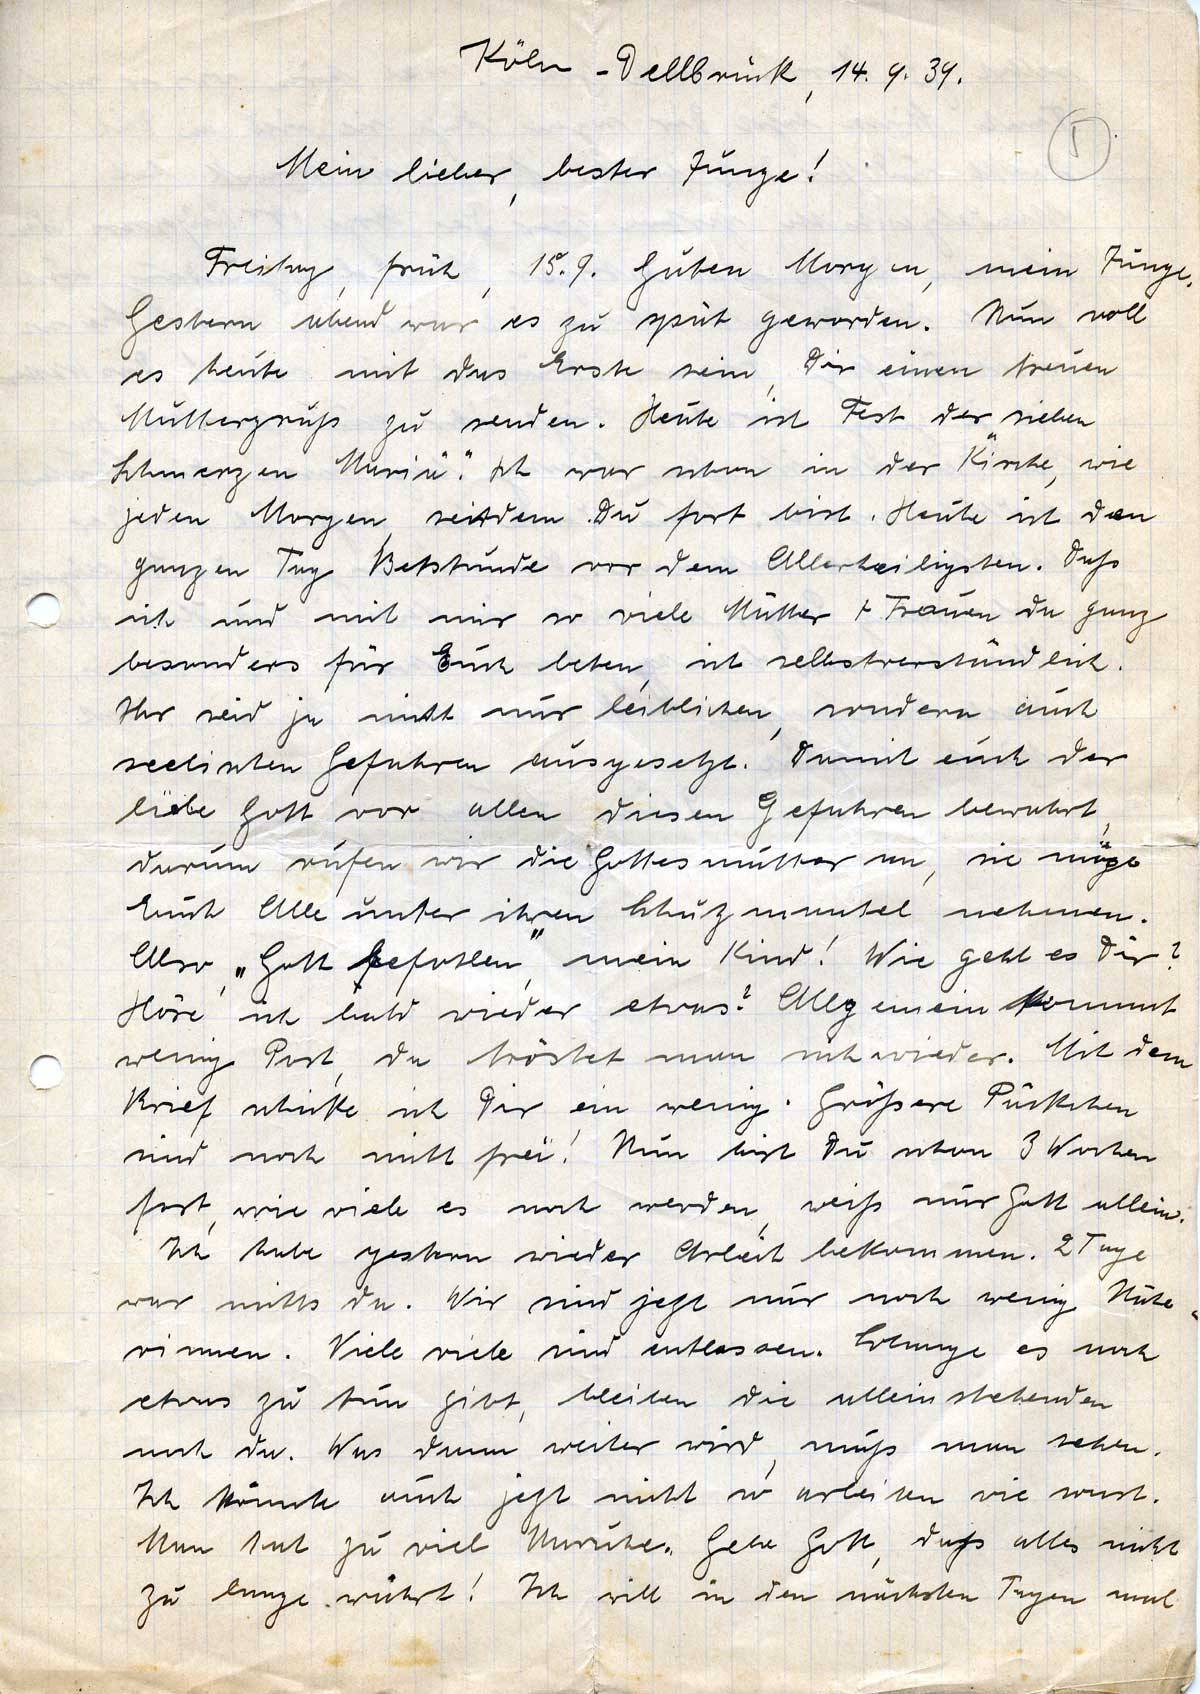 Köln-Dellbrück, 14.9.39.
5
Mein lieber, bester Junge!
Freitag, früh, 15.9. Guten Morgen, mein Junge.
Gestern abend war es zu spät geworden. Nun soll
es heute mit das Erste sein, Dir einen treuen
Muttergruß zu senden. Heute ist Fest der „sieben
Schmerzen Mariä". Ich war schon in der Kirche, wie
jeden Morgen, seitdem Du fort bist. Heute ist den
ganzen Tag Betstunde vor dem Allerheiligsten. Daß
ich und mit mir so viele Mütter + Frauen da ganz
besonders für Euch beten, ist selbstverständlich.
Ihr seid ja nicht nur leiblichen, sondern auch
seelischen Gefahren ausgesetzt. Damit euch der
liebe Gott vor allen diesen Gefahren bewahrt,
darum rufen wir die Gottesmutter an, sie möge
Euch Alle unter ihren Schutzmantel nehmen.
Also „Gott befohlen", mein Kind! Wie geht es Dir?
Höre ich bald wieder etwas? Allgemein kommt
wenig Post, da tröstet man sich wieder. Mit dem
Brief schicke ich Dir ein wenig. Größere Päckchen
sind noch nicht frei! Nun bist Du schon 3 Wochen
fort, wie viele es noch werden, weiß nur Gott allein.
Ich habe gestern wieder Arbeit bekommen. 2 Tage
war nichts da. Wir sind jetzt nur noch wenig Nähe-
rinnen. Viele viele sind entlassen. Solange es noch
etwas zu tun gibt, bleiben die alleinstehenden
noch da. Was dann weiter wird, muß man sehen.
Ich könnte auch jetzt nicht so arbeiten wie sonst.
Man hat zu viel Unruhe. Gebe Gott, daß alles nicht
zu lange währt! Ich will in den nächsten Tagen mal